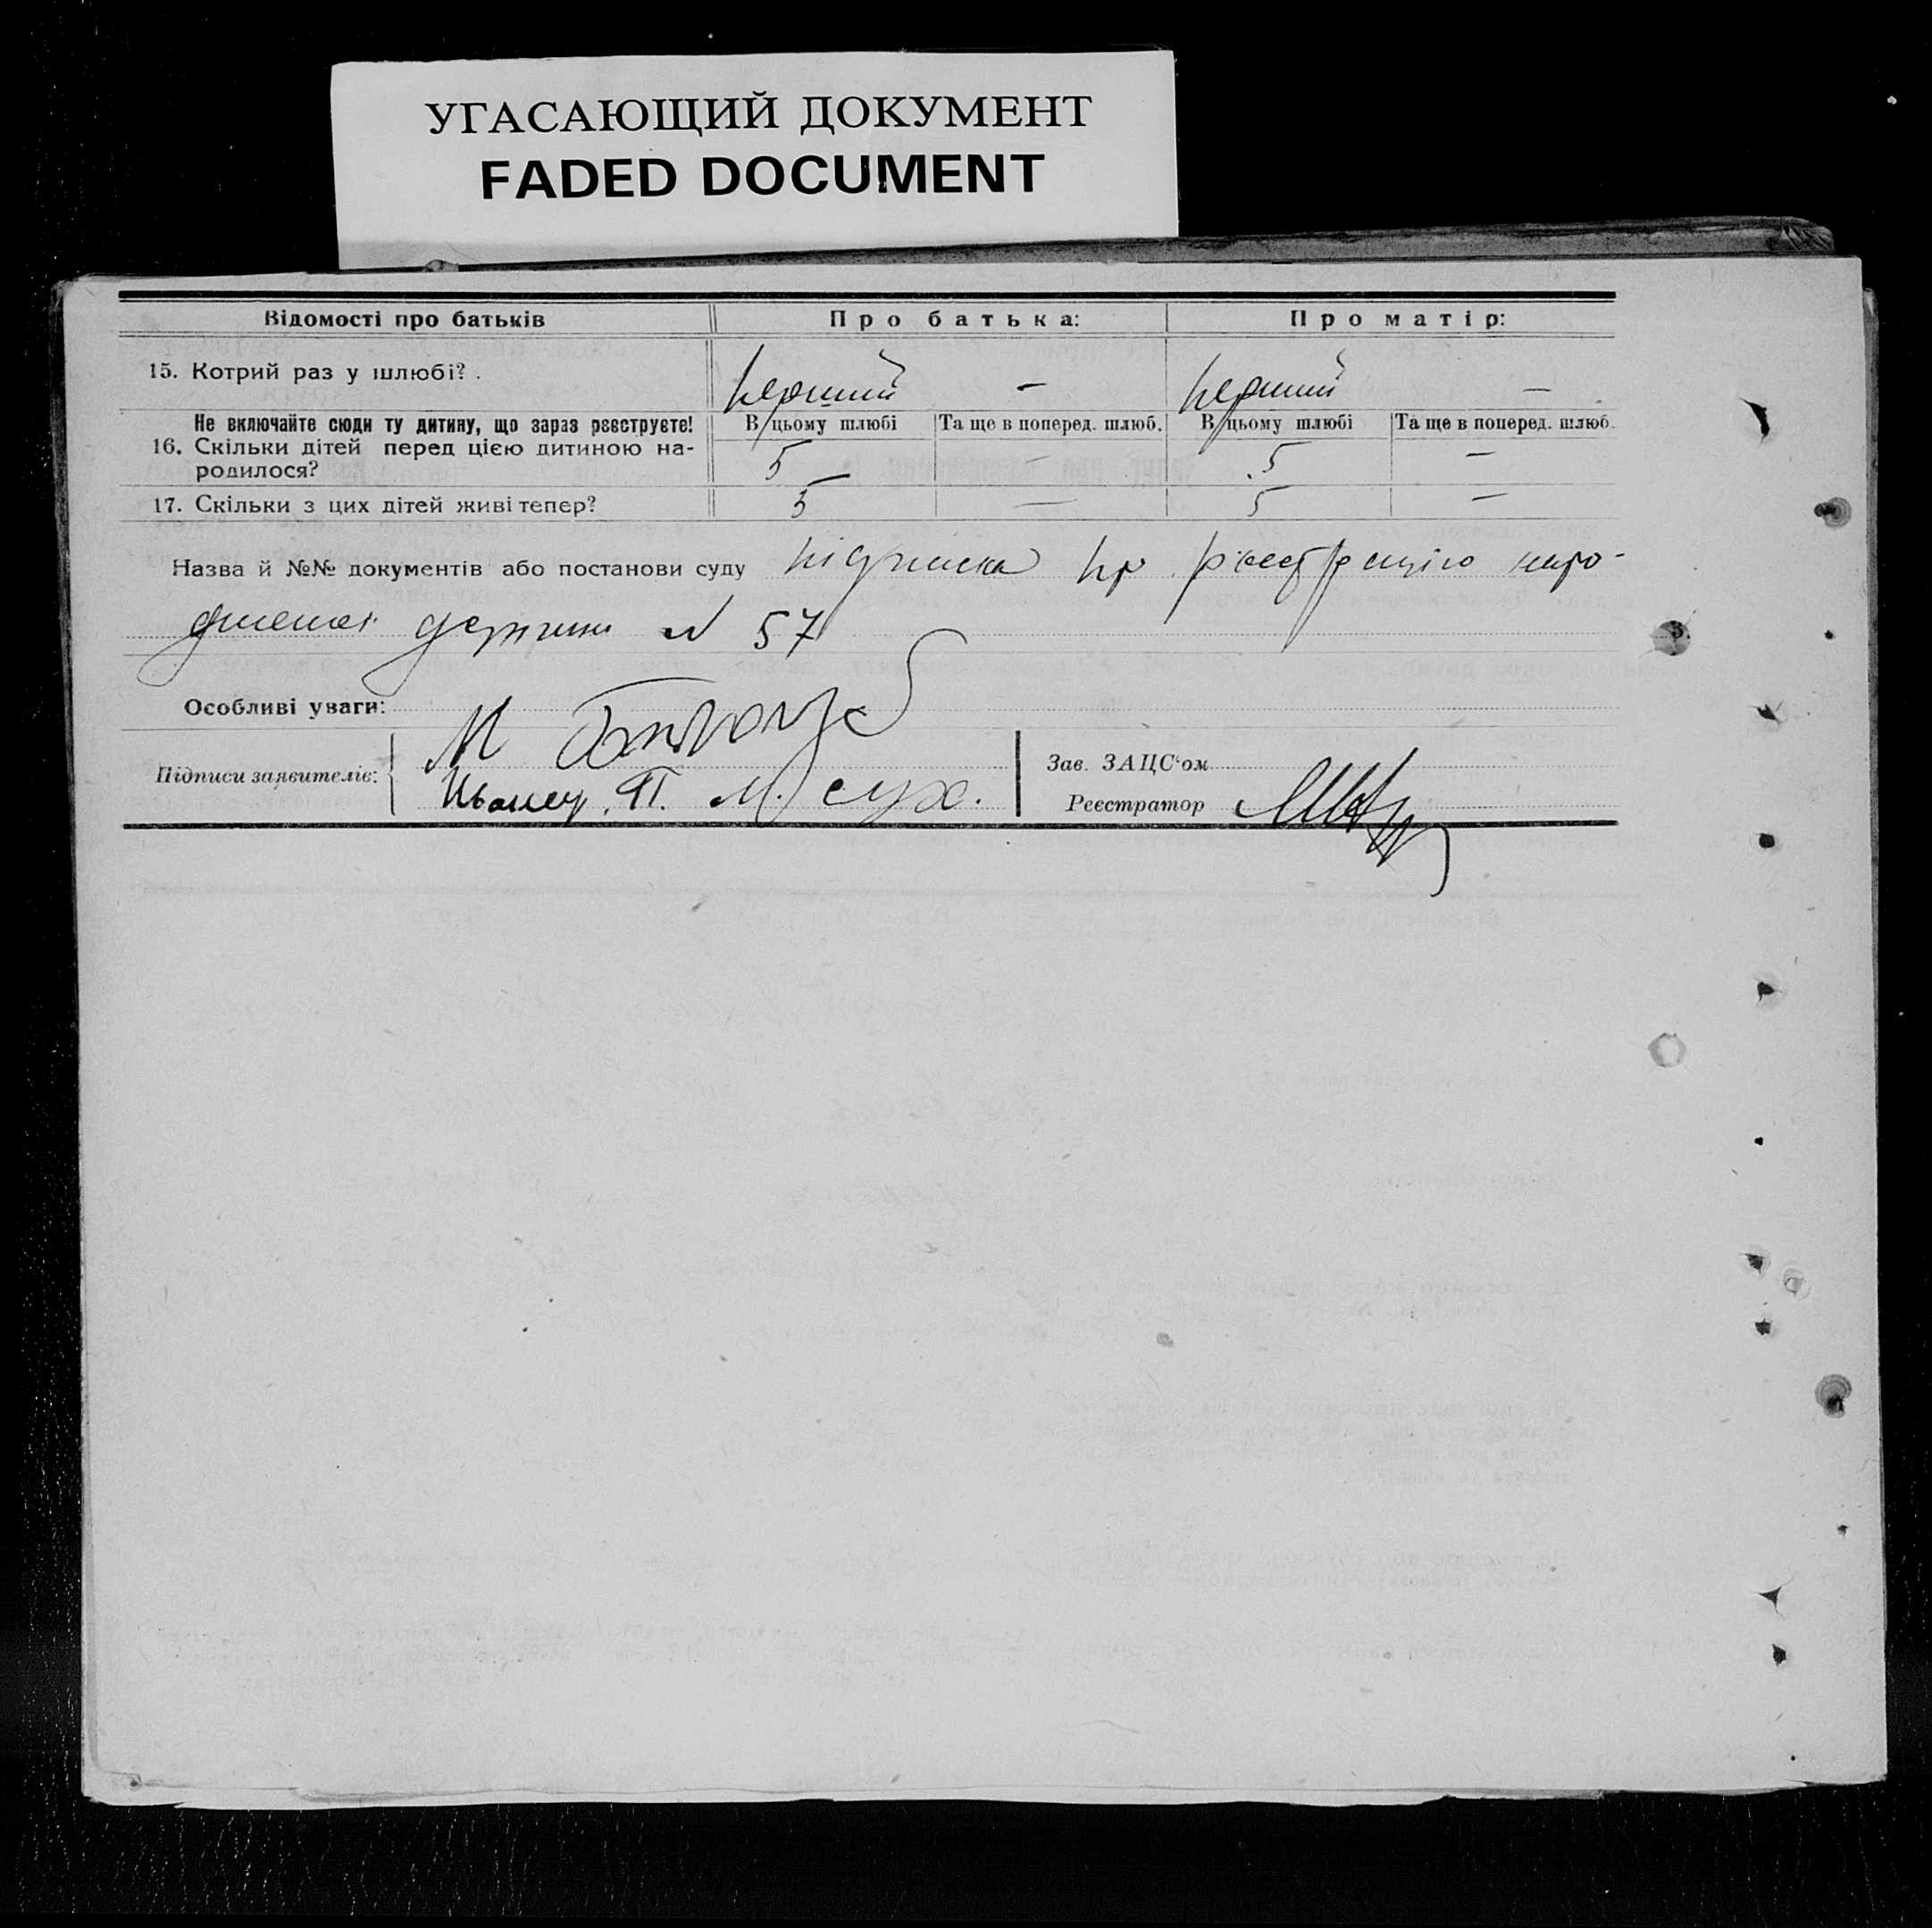 УГАСАЮЩИЙ ДОКУМЕНТ
FADED DOCUMENT
Відомості про батьків Про батька: Про матір:
15. Котрий раз у шлюбі? . перший — перший —
Не включайте сюди ту дитину, що зараз реєструєте! В цьому шлюбі Та ще в поперед. шлюб. В цьому шлюбі Та ще в поперед. шлюб.
16. Скільки дітей перед цією дитиною на-
родилося? 5 — 5 —
17. Скільки з цих дітей живі тепер? 5 — 5 —
Назва й №№ документів або постанови суду підписка пр реєстрацію наро-
дженої дитини № 57
Особливі уваги:
Підписи заявителів: М
Зав. ЗАЦС'ом
Реєстратор